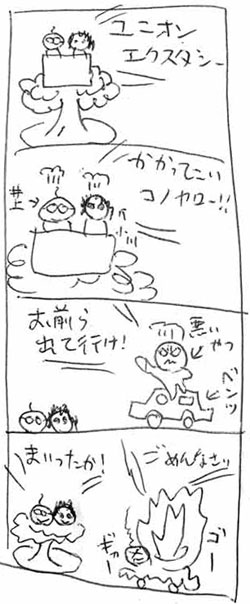 ユニオン
エクスタシー
かかってこい
コノヤロー!!
井上
小川
お前ら
出て行け!
悪いやつ
ベンツ
まいったか!
ごめんなさい
ゴー
ギャー